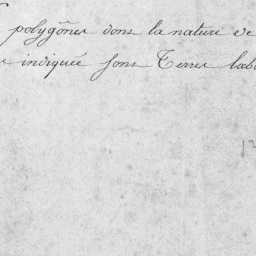 polygônes dont la nature de
indiquée sont Terres lab